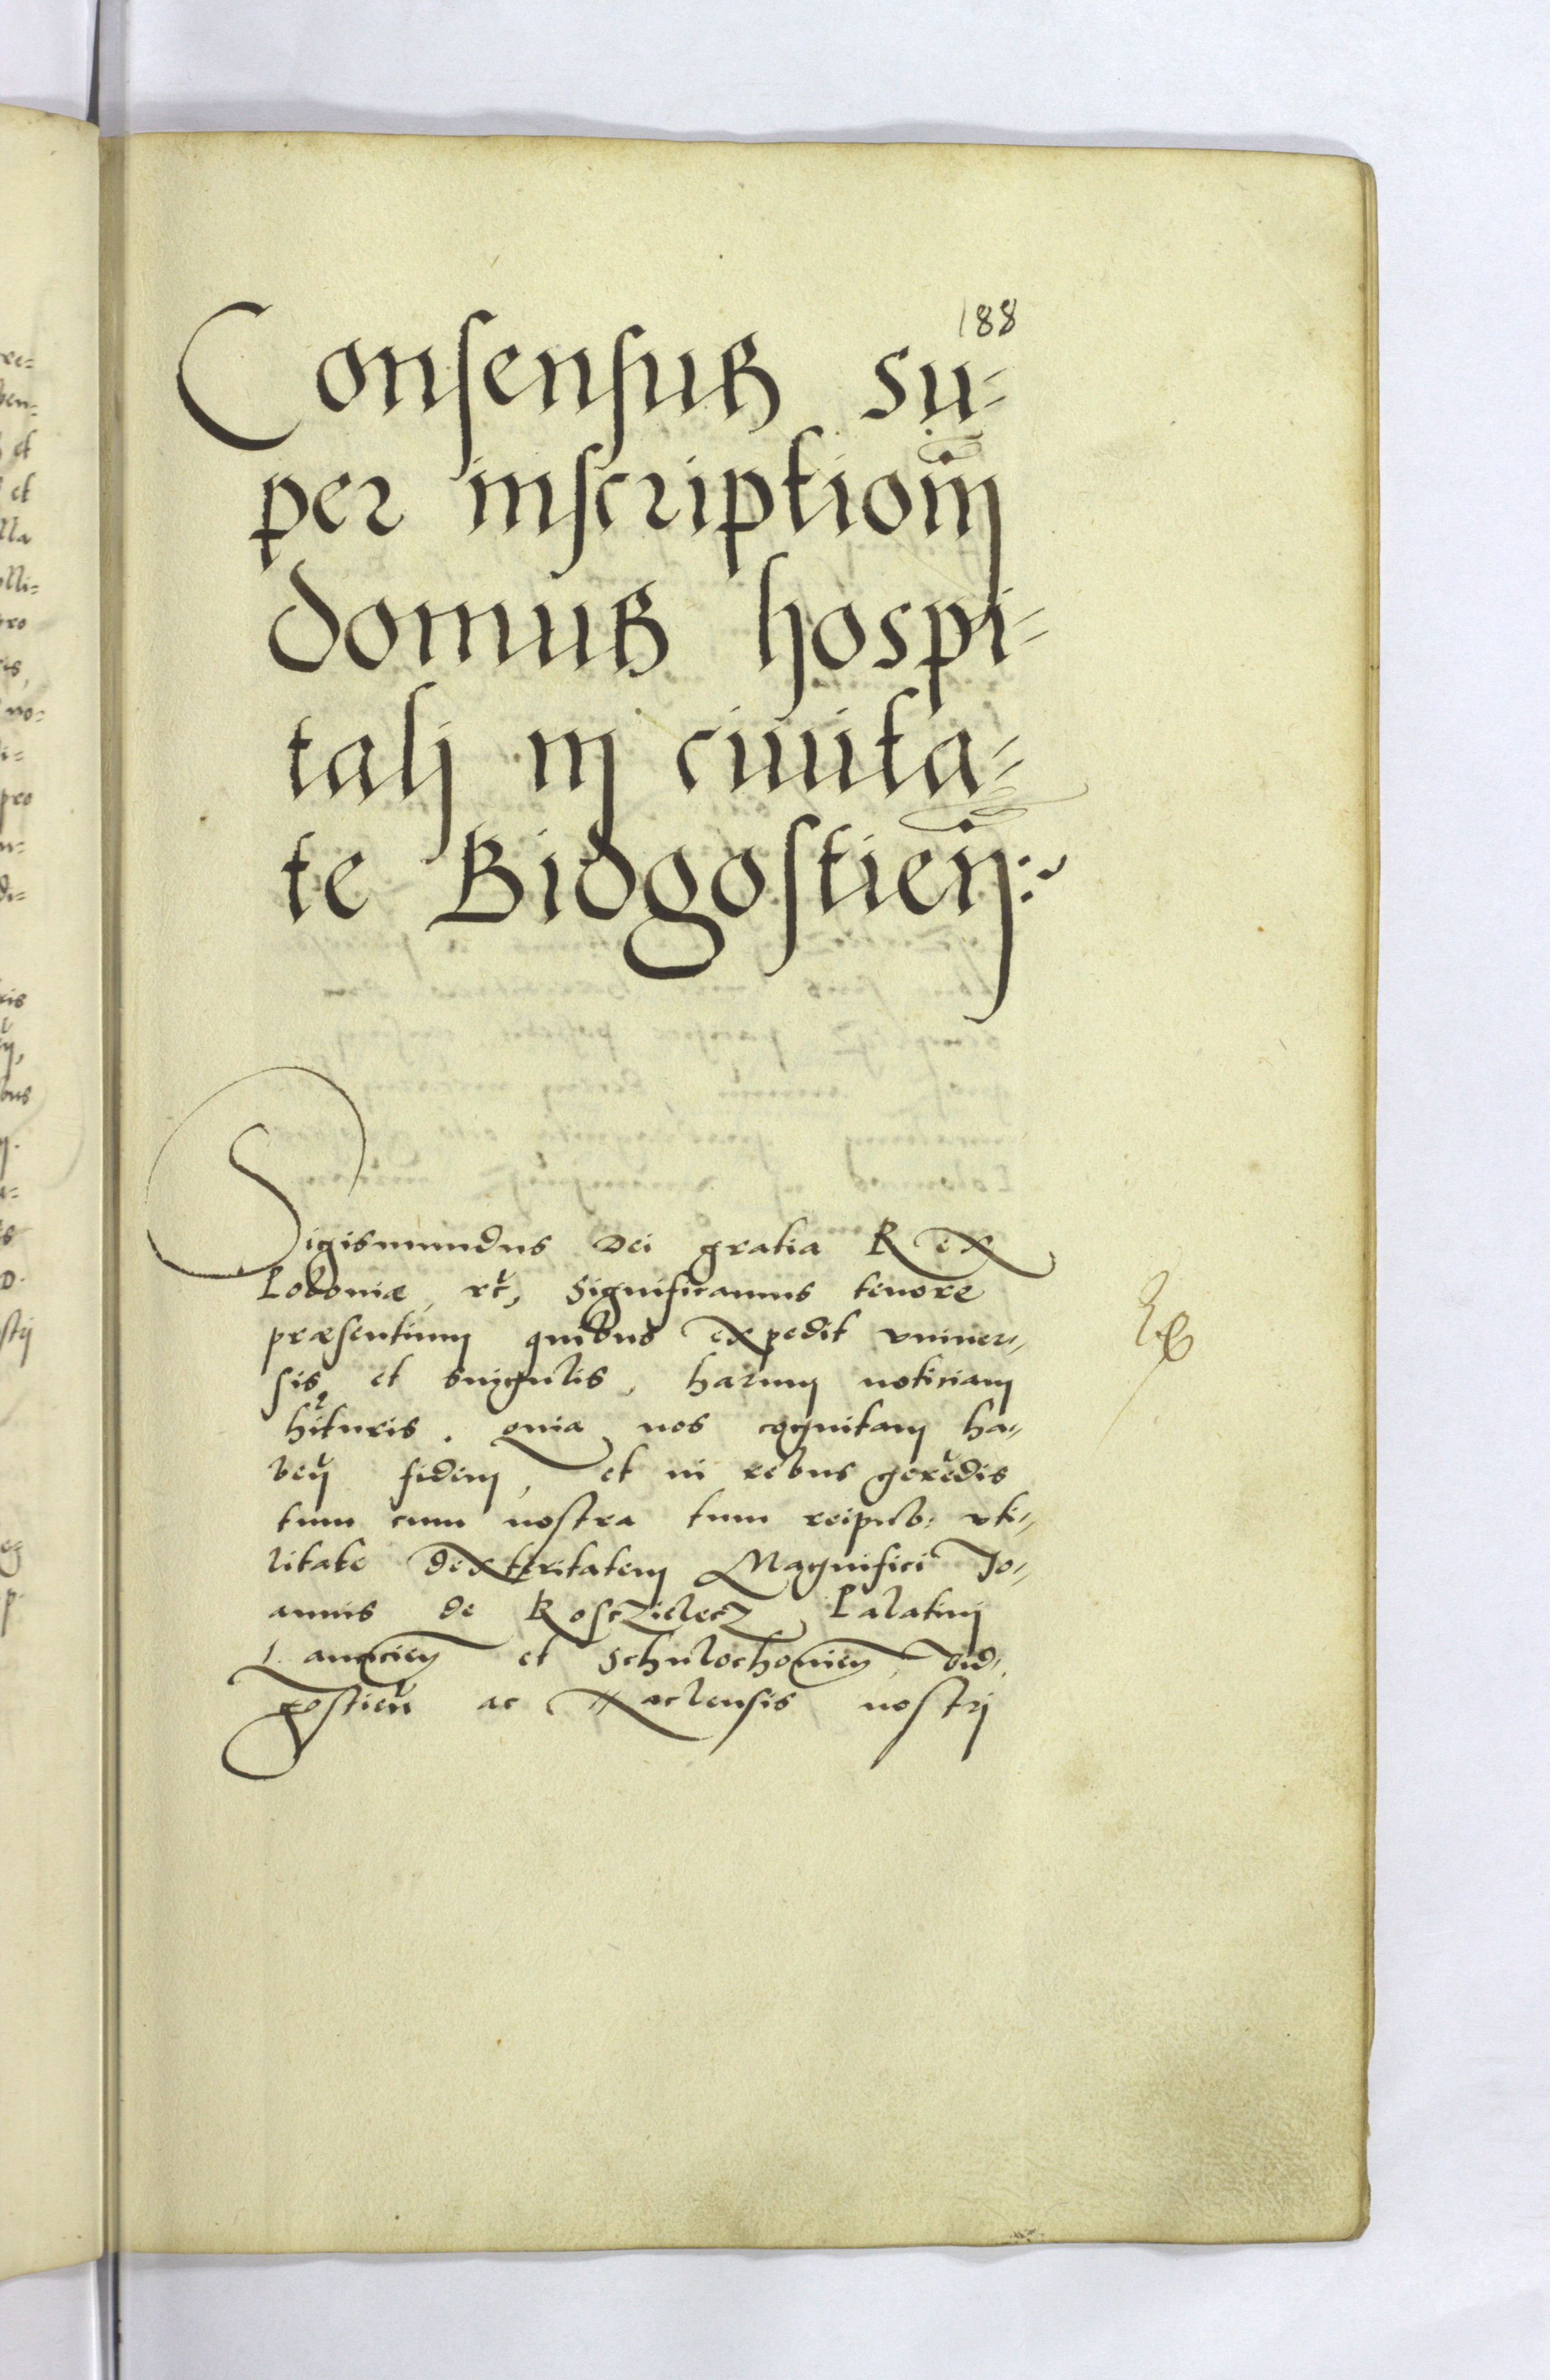 188
Consensus su-
per inscriptiom̃
domus hospi-
talj in ciuita-
te Bidgostien̄:
Sigismundus Dei gratia Rex
Poloniæ, rc̃, Significamus tenore
præsentium quibus expedit vniuer-
sis et singulis, harum noticiam
hituris. Quia nos cognitam ha-
ben̄ fidem, et in rebus gerēdis
tum cum nostra tum reipub: vti-
litate dexteritatem Magnifici Jo-
annis de Kosczielecz Palatini
Lanciciен̄ et Schulochouien̄, Bid-
gostien̄ ac Naclensis nostri